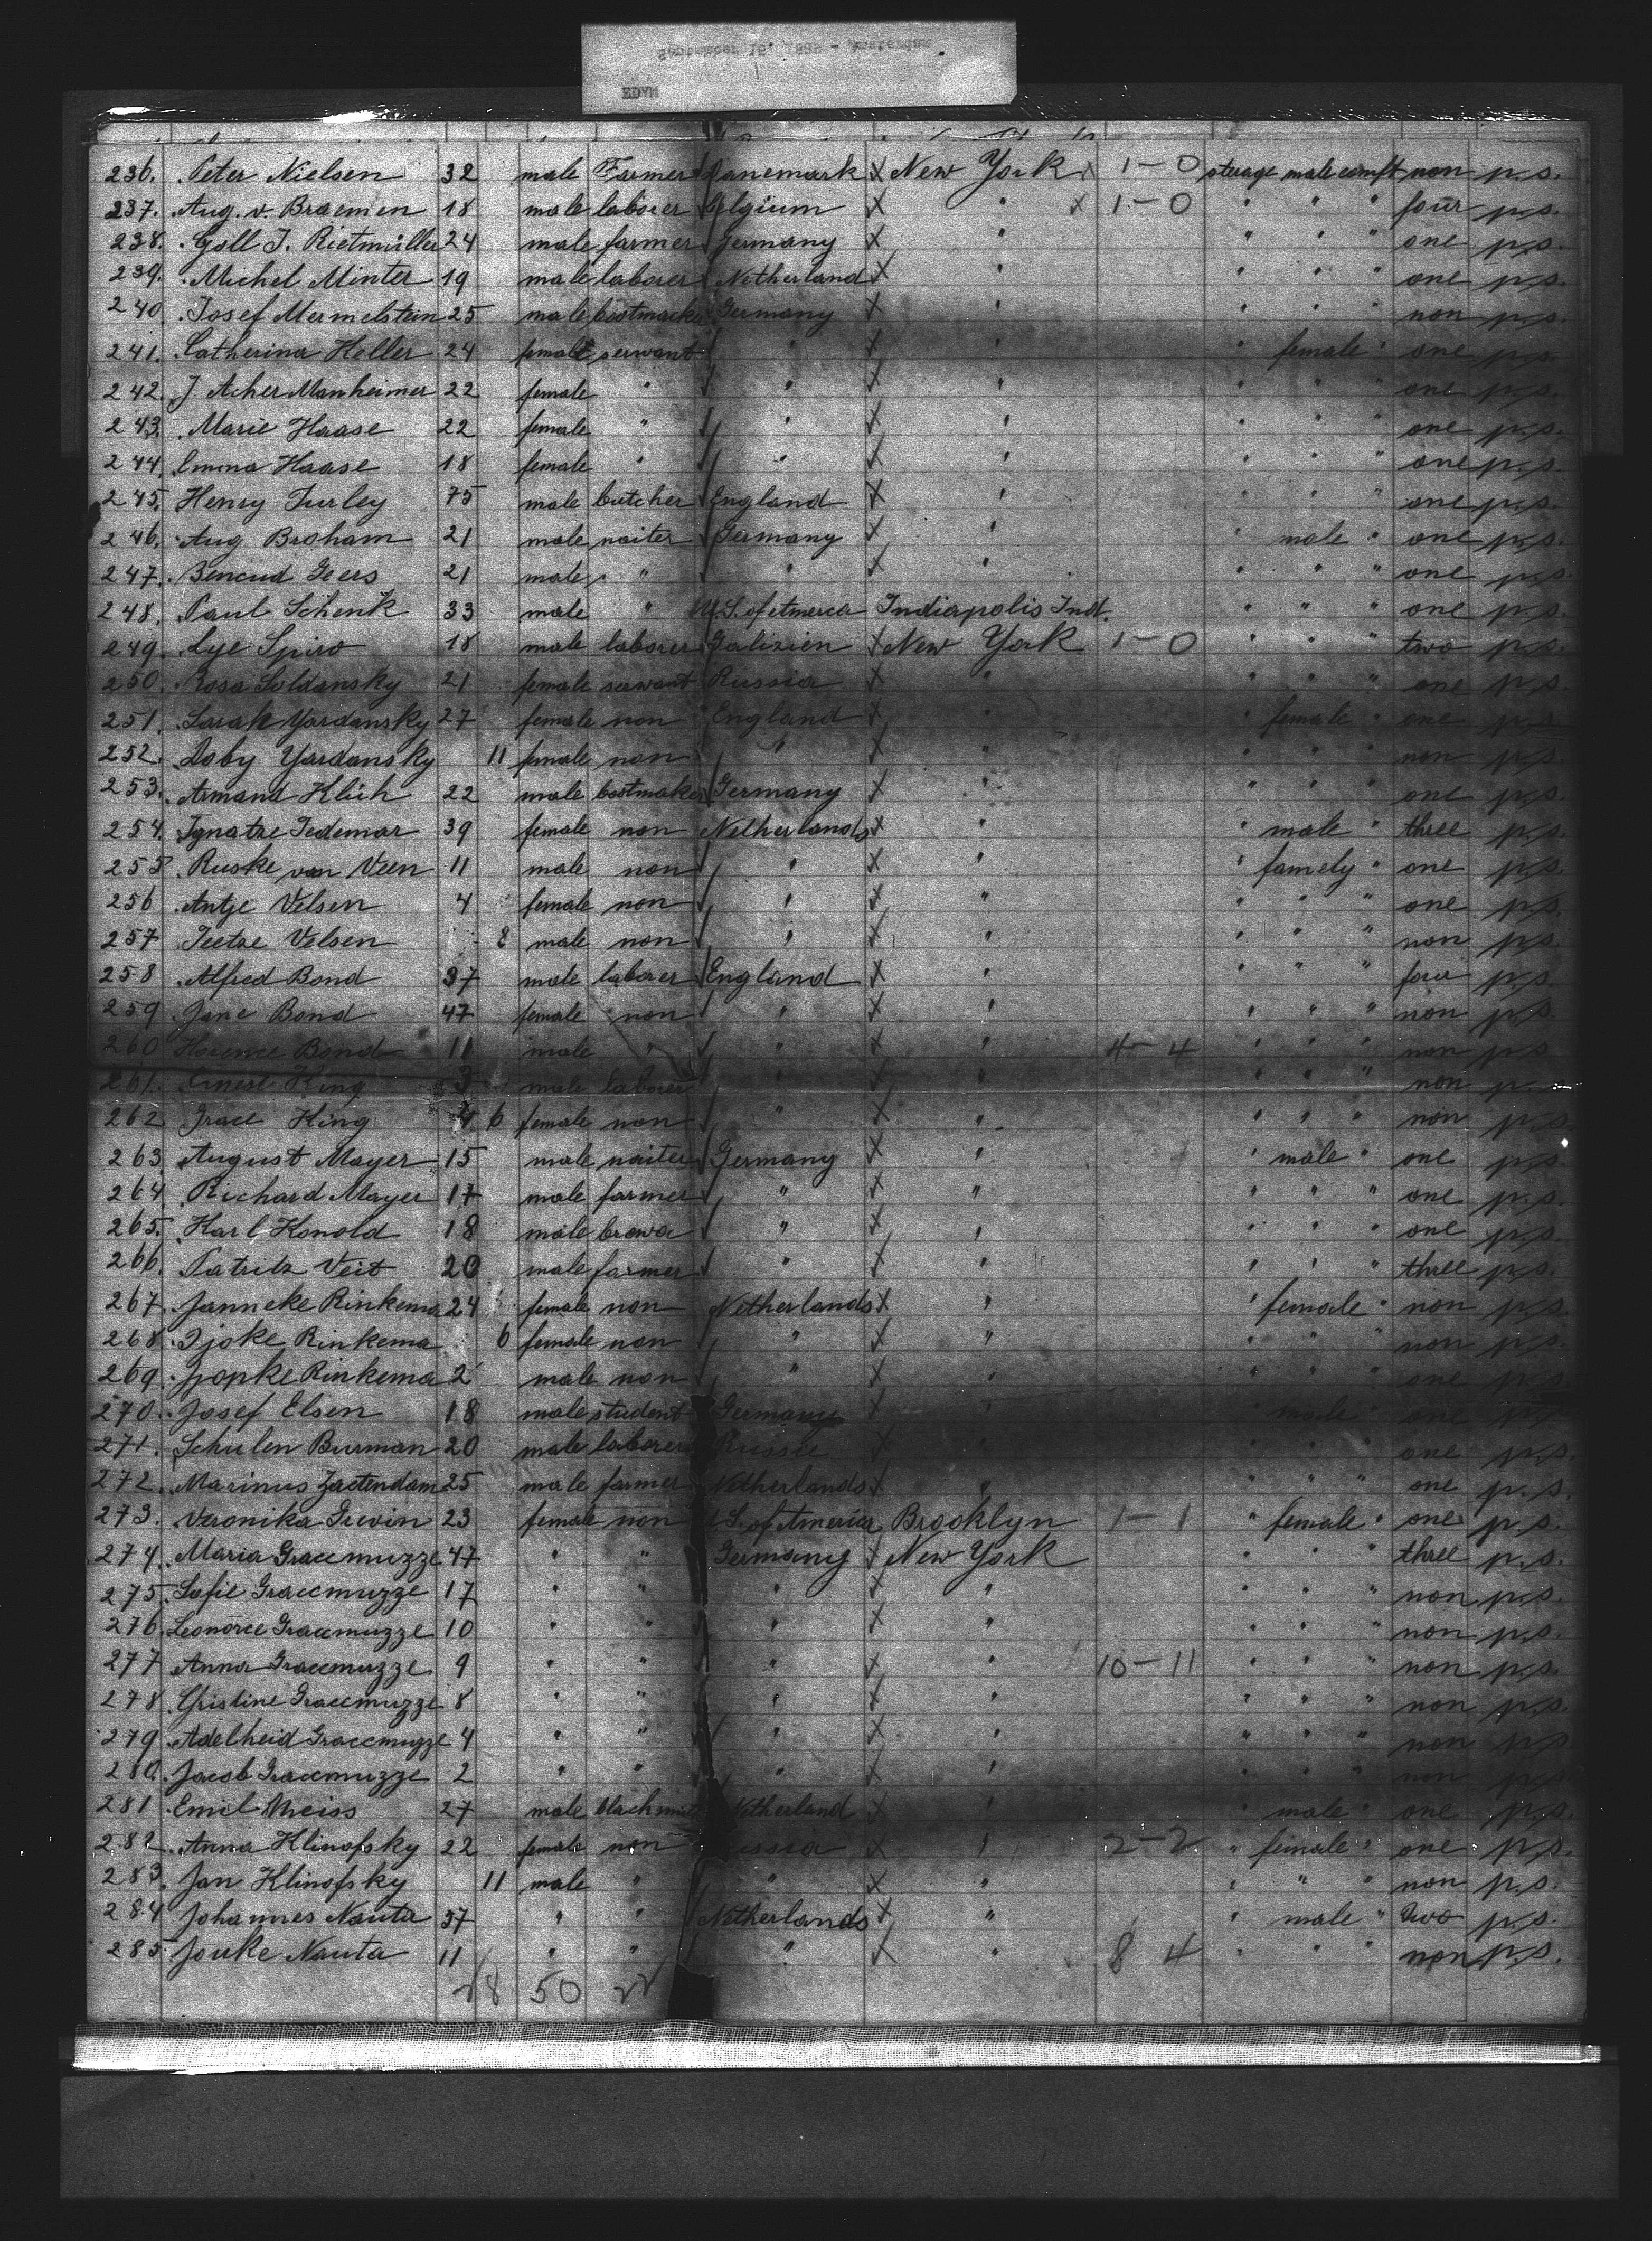 September 16, 1888 - Amsterdam
EDAM
236. Peter Nielsen 32 male Farmer Danemark X New York X 1-0 sterage male comft non p.s.
237. Aug. v. Braemen 18 male laborer Belgium X " X 1-0 " " " four p.s.
238. Goll J. Rietmüller 24 male farmer Germany X " " " " one p.s.
239. Michel Minter 19 male laborer Netherland X " " " " one p.s.
240 Josef Mermelstein 25 male bootmacker Germany X " " " " non p.s.
241. Catherina Heller 24 female servant " X " " female " one p.s.
242. J Acher Manheimer 22 female " " X " " " " one p.s.
243. Marie Haase 22 female " " X " " " " one p.s.
244. Emma Haase 18 female " " X " " " " one p.s.
245. Henry Turley 75 male butcher England X " " " " one p.s.
246. Aug Broham 21 male waiter Germany X " " male " one p.s.
247. Geers 21 male " " X " " " " one p.s.
248. Paul Schenk 33 male " U.S. of America Indiapolis Ind. " " " one p.s.
249. Lye Spiro 18 male laborer Galizien X New York 1-0 " " " two p.s.
250. Rosa Soldansky 21 female servant Russia X " " " " one p.s.
251. Sarah Yordansky 27 female non England X " " female " one p.s.
252. Doby Yordansky 11 female non " X " " " " non p.s.
253. Armand Klich 22 male bootmaker Germany X " " " " one p.s.
254. Ignatze Tedemar 39 female non Netherlands X " " male " three p.s.
255 Ruske van Veen 11 male non " X " " famely " one p.s.
256 Antje Velsen 4 female non " X " " " " one p.s.
257 Teetze Velsen 8 male non " X " " " " non p.s.
258 Alfred Bond 37 male laborer England X " " " " four p.s.
259 Jane Bond 47 female non " X " " " " non p.s.
260 Florence Bond 11 male " " X " 4-4 " " " non p.s.
261. King 3 male laborer " X " " " " non p.s.
262 Grace King 4 6 female non " X " " " " non p.s.
263 August Mayer 15 male waiter Germany X " " male " one p.s.
264 Richard Mayer 17 male farmer " X " " " " one p.s.
265. Karl Konold 18 male brewa " X " " " " one p.s.
266. Patritz Veit 20 male farmer " X " " " " three p.s.
267. Janneke Rinkema 24 female non Netherlands X " " female " non p.s.
268. Tjoke Rinkema 6 female non " X " " " " non p.s.
269. Jjopke Rinkema 2 male non " X " " " " one p.s.
270. Josef Elsen 18 male student Germany X " " male " one p.s.
271. Schulen Burman 20 male laborer Russie X " " " " one p.s.
272. Marinus Zaetendam 25 male farmer Netherlands X " " " " one p.s.
273. Veronika Grevin 23 female non U.S. of America Brooklyn 1-1 " female " one p.s.
274. Maria Graecmuzze 47 " " Germany X New York " " " three p.s.
275. Sofie Graecmuzze 17 " " " X " " " " non p.s.
276. Leonoree Graecmuzze 10 " " " X " " " " non p.s.
277 Anna Graecmuzze 9 " " " X " 10-11 " " " non p.s.
278 Christine Graecmuzze 8 " " " X " " " " non p.s.
279 Adelheid Graecmuzze 4 " " " X " " " " non p.s.
280. Jacob Graecmuzze 2 " " " X " " " " non p.s.
281 Emil Weiss 27 male blachmit Netherland X " " male " one p.s.
282. Anna Klinofsky 22 female non Russia X " 2-2 " female " one p.s.
283. Jan Klinofsky 11 male " " X " " " " non p.s.
284 Johannes Nauta 37 " " Netherlands X " " male " two p.s.
285 Jouke Nauta 11 " " " X " 8 4 " " " non p.s.
28 50 22